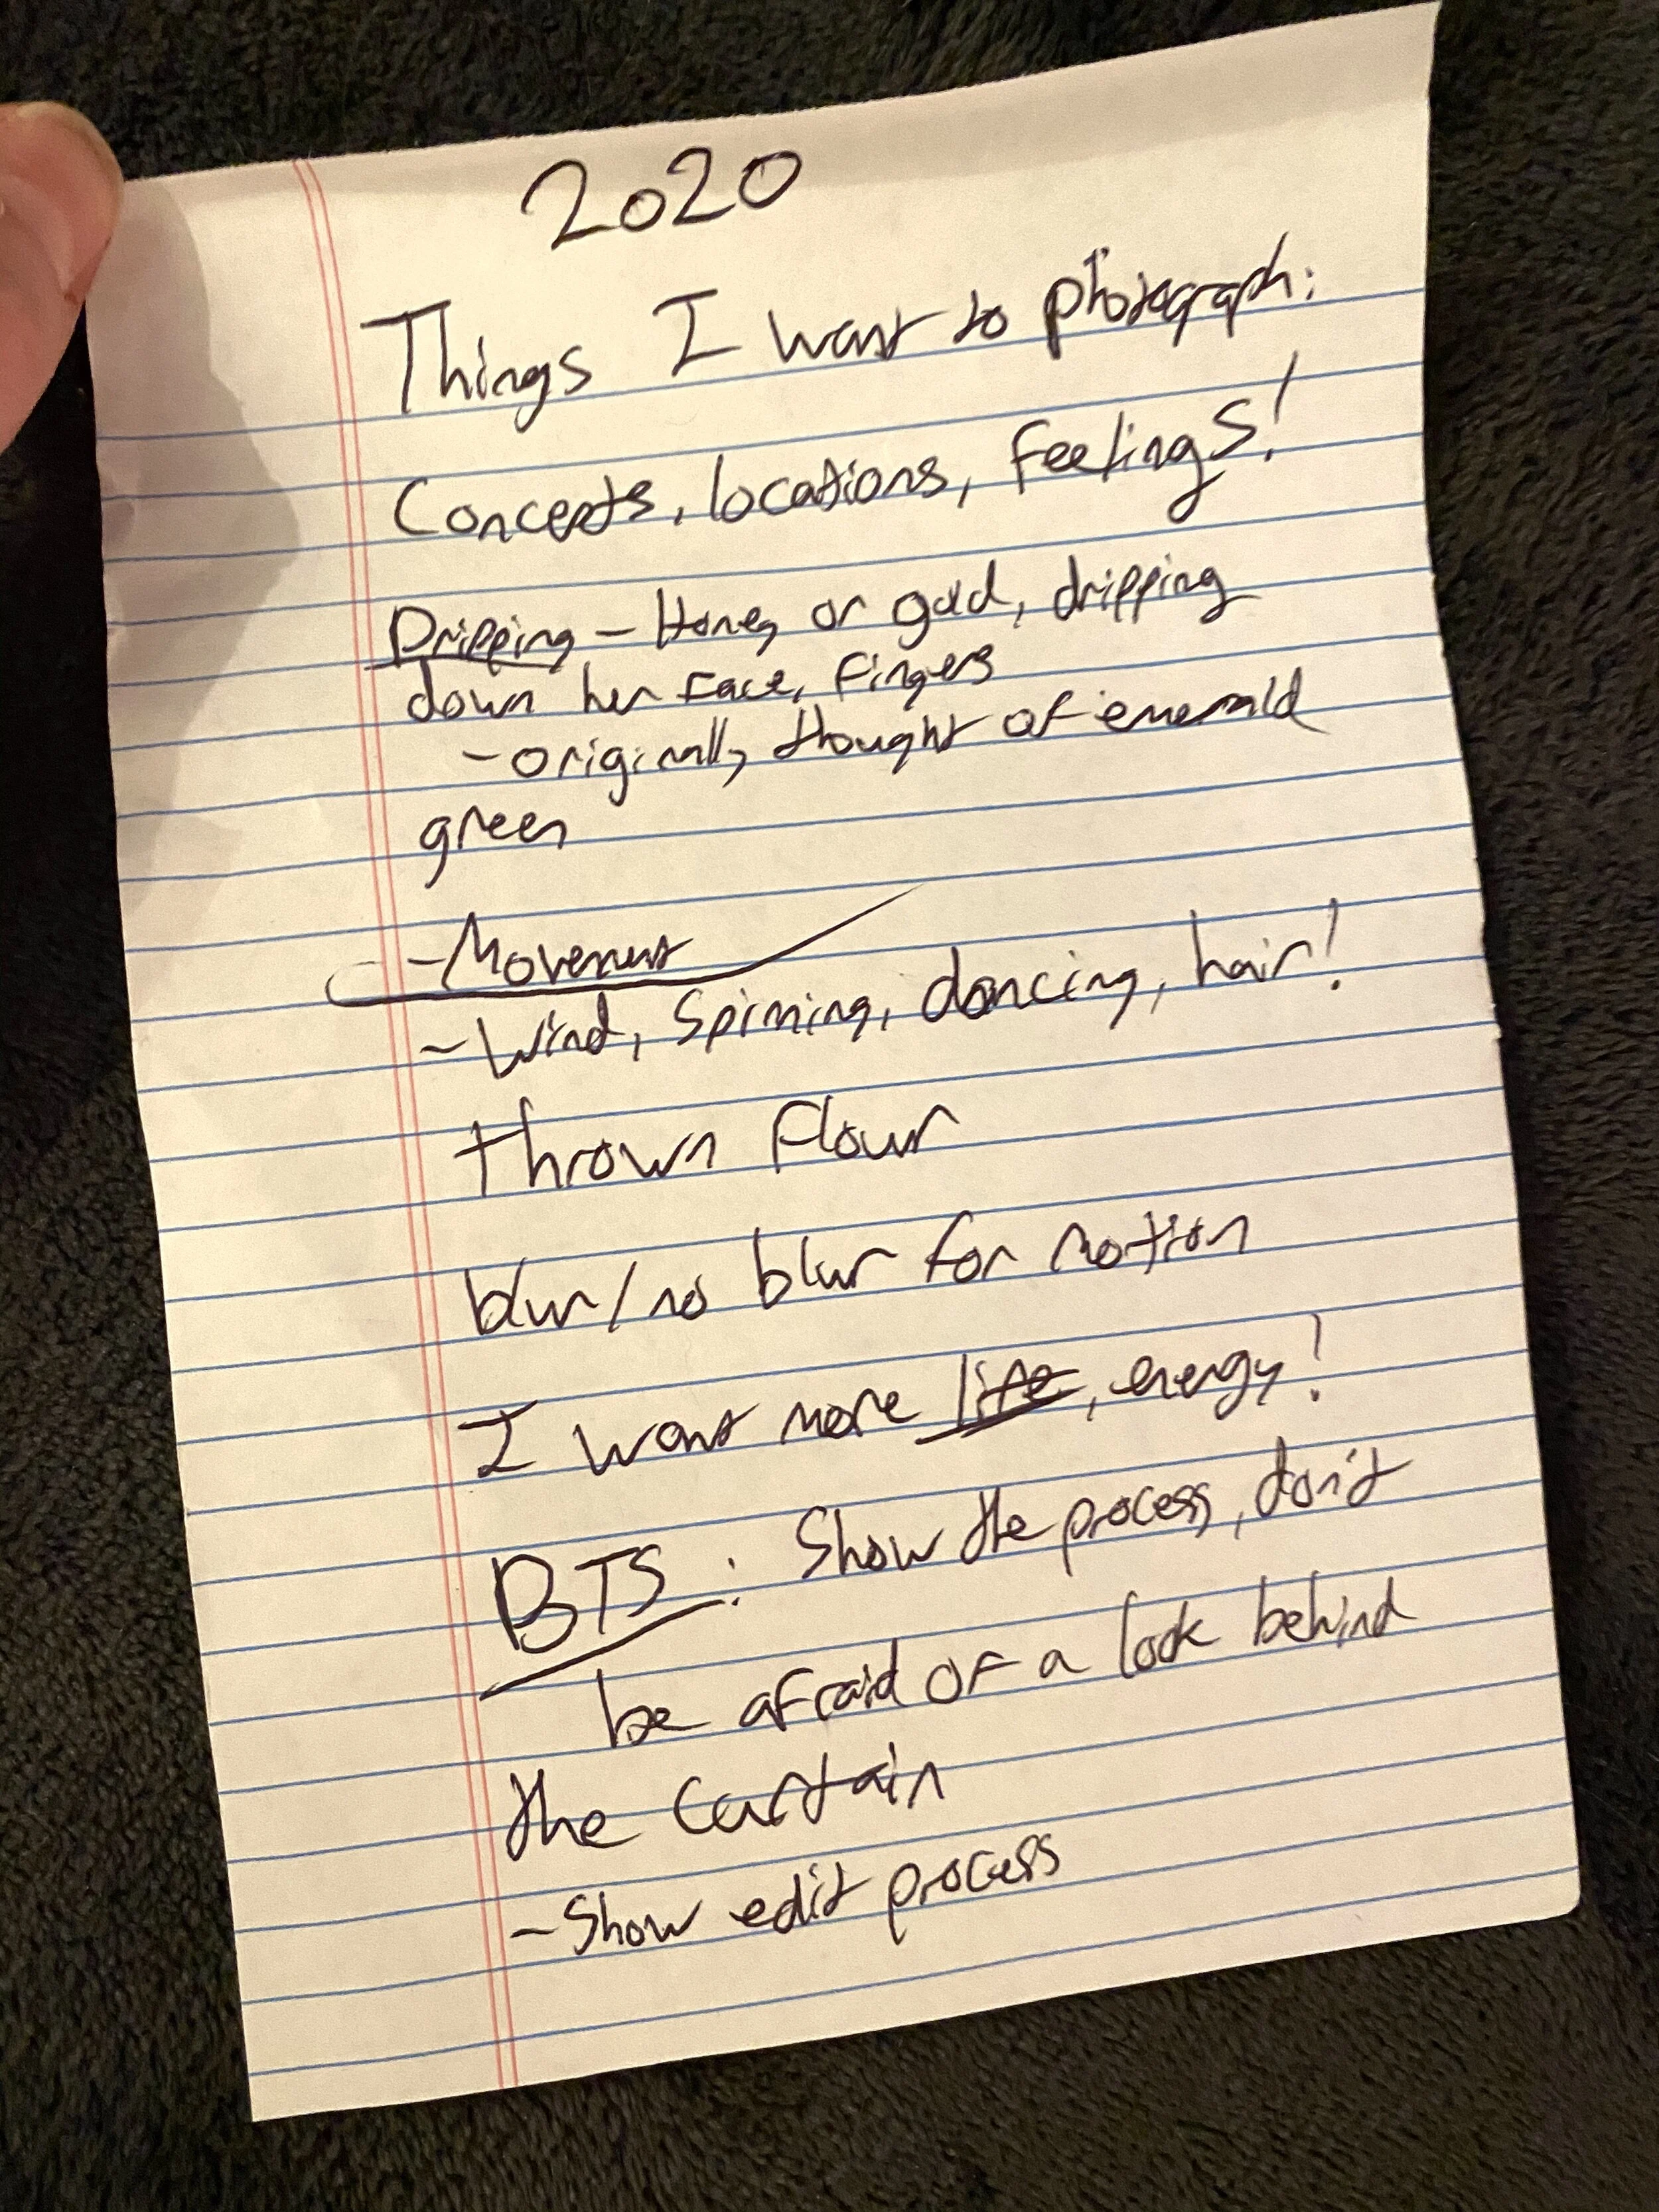 2020
Things I want to photograph:
Concepts, locations, feelings!
Dripping - Honey or gold, dripping
down her face, fingers
- originally thought of emerald
green
- Movement
- Wind, Spinning, dancing, hair!
thrown flour
blur/no blur for motion
I want more life, energy!
BTS: Show the process, don't
be afraid of a look behind
the curtain
- Show edit process